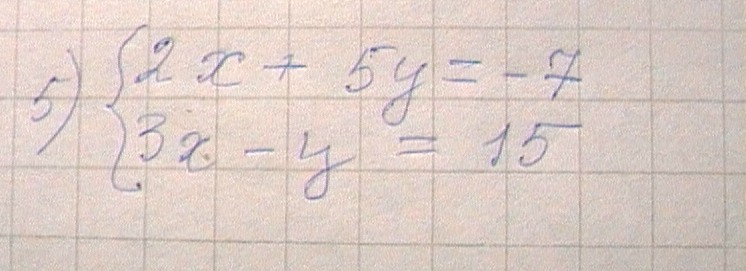 5) { 2x + 5y = -7
3x - y = 15